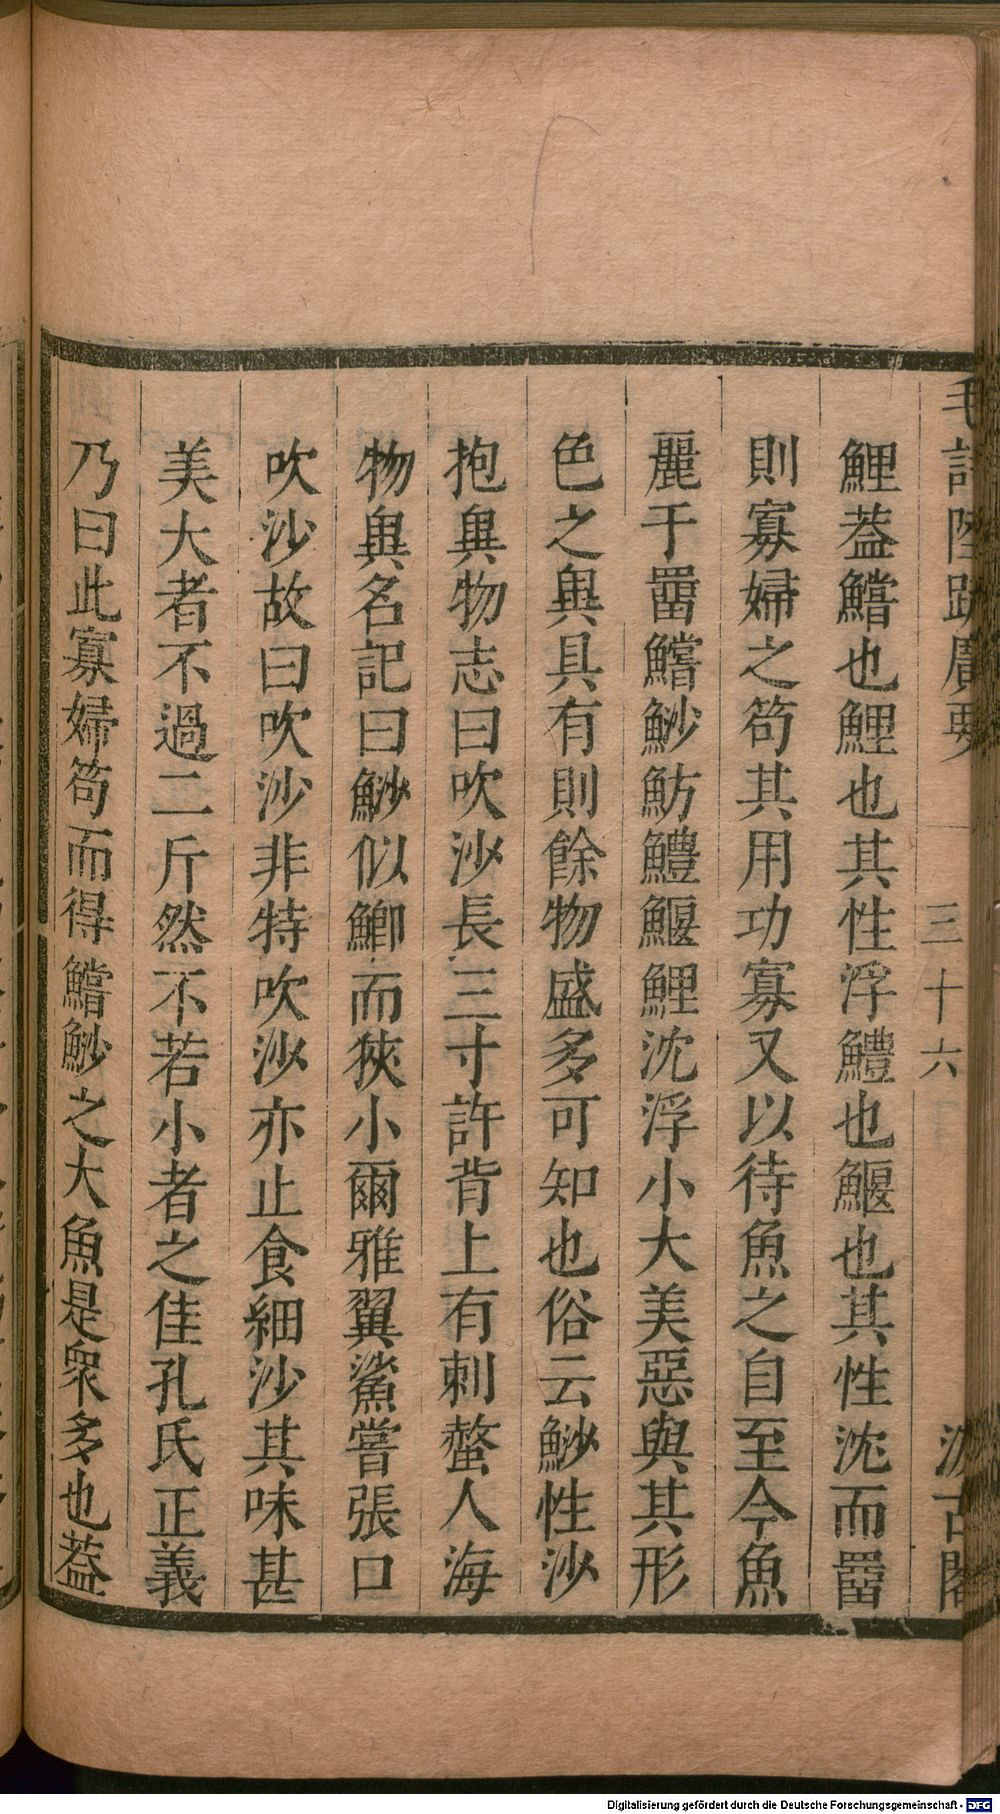 毛詩陸疏廣要
三十六
汲古閣
鯉葢鱨也鯉也其性浮鱧也鰋也其性沈而罶
則寡婦之笱其用功寡又以待魚之自至今魚
麗于罶鱨魦魴鱧鰋鯉沈浮小大美惡與其形
色之異具有則餘物盛多可知也俗云魦性沙
抱異物志曰吹沙長三寸許背上有刺螫人海
物異名記曰魦似鯽而狹小爾雅翼鯊嘗張口
吹沙故曰吹沙非特吹沙亦止食細沙其味甚
美大者不過二斤然不若小者之佳孔氏正義
乃曰此寡婦笱而得鱨魦之大魚是衆多也葢
Digitalisierung gefördert durch die Deutsche Forschungsgemeinschaft - DFG